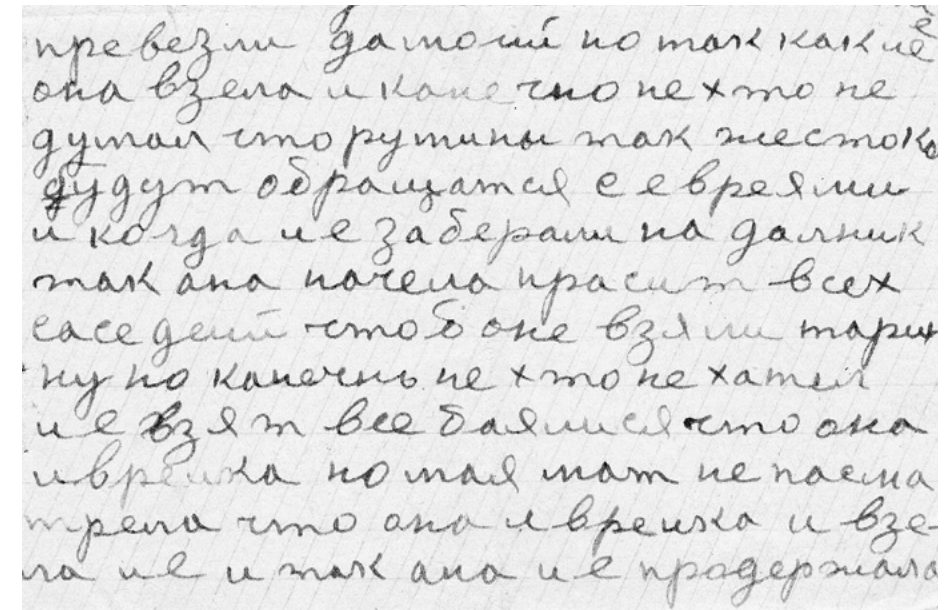 превезли дамоий но так как иё
она взела и канечно нехто не
думал что румины так жестоко
будут обращатся с евреями
и когда ие заберали на далник
так ана начела прасит всех
саседеий чтоб оне взяли тарин
ну но канечнь нехто не хател
ие взят все баялися что она
ивреика но мая мат не пасма
трела что ана ивреика и взе-
ла ие и так ана ие продержала